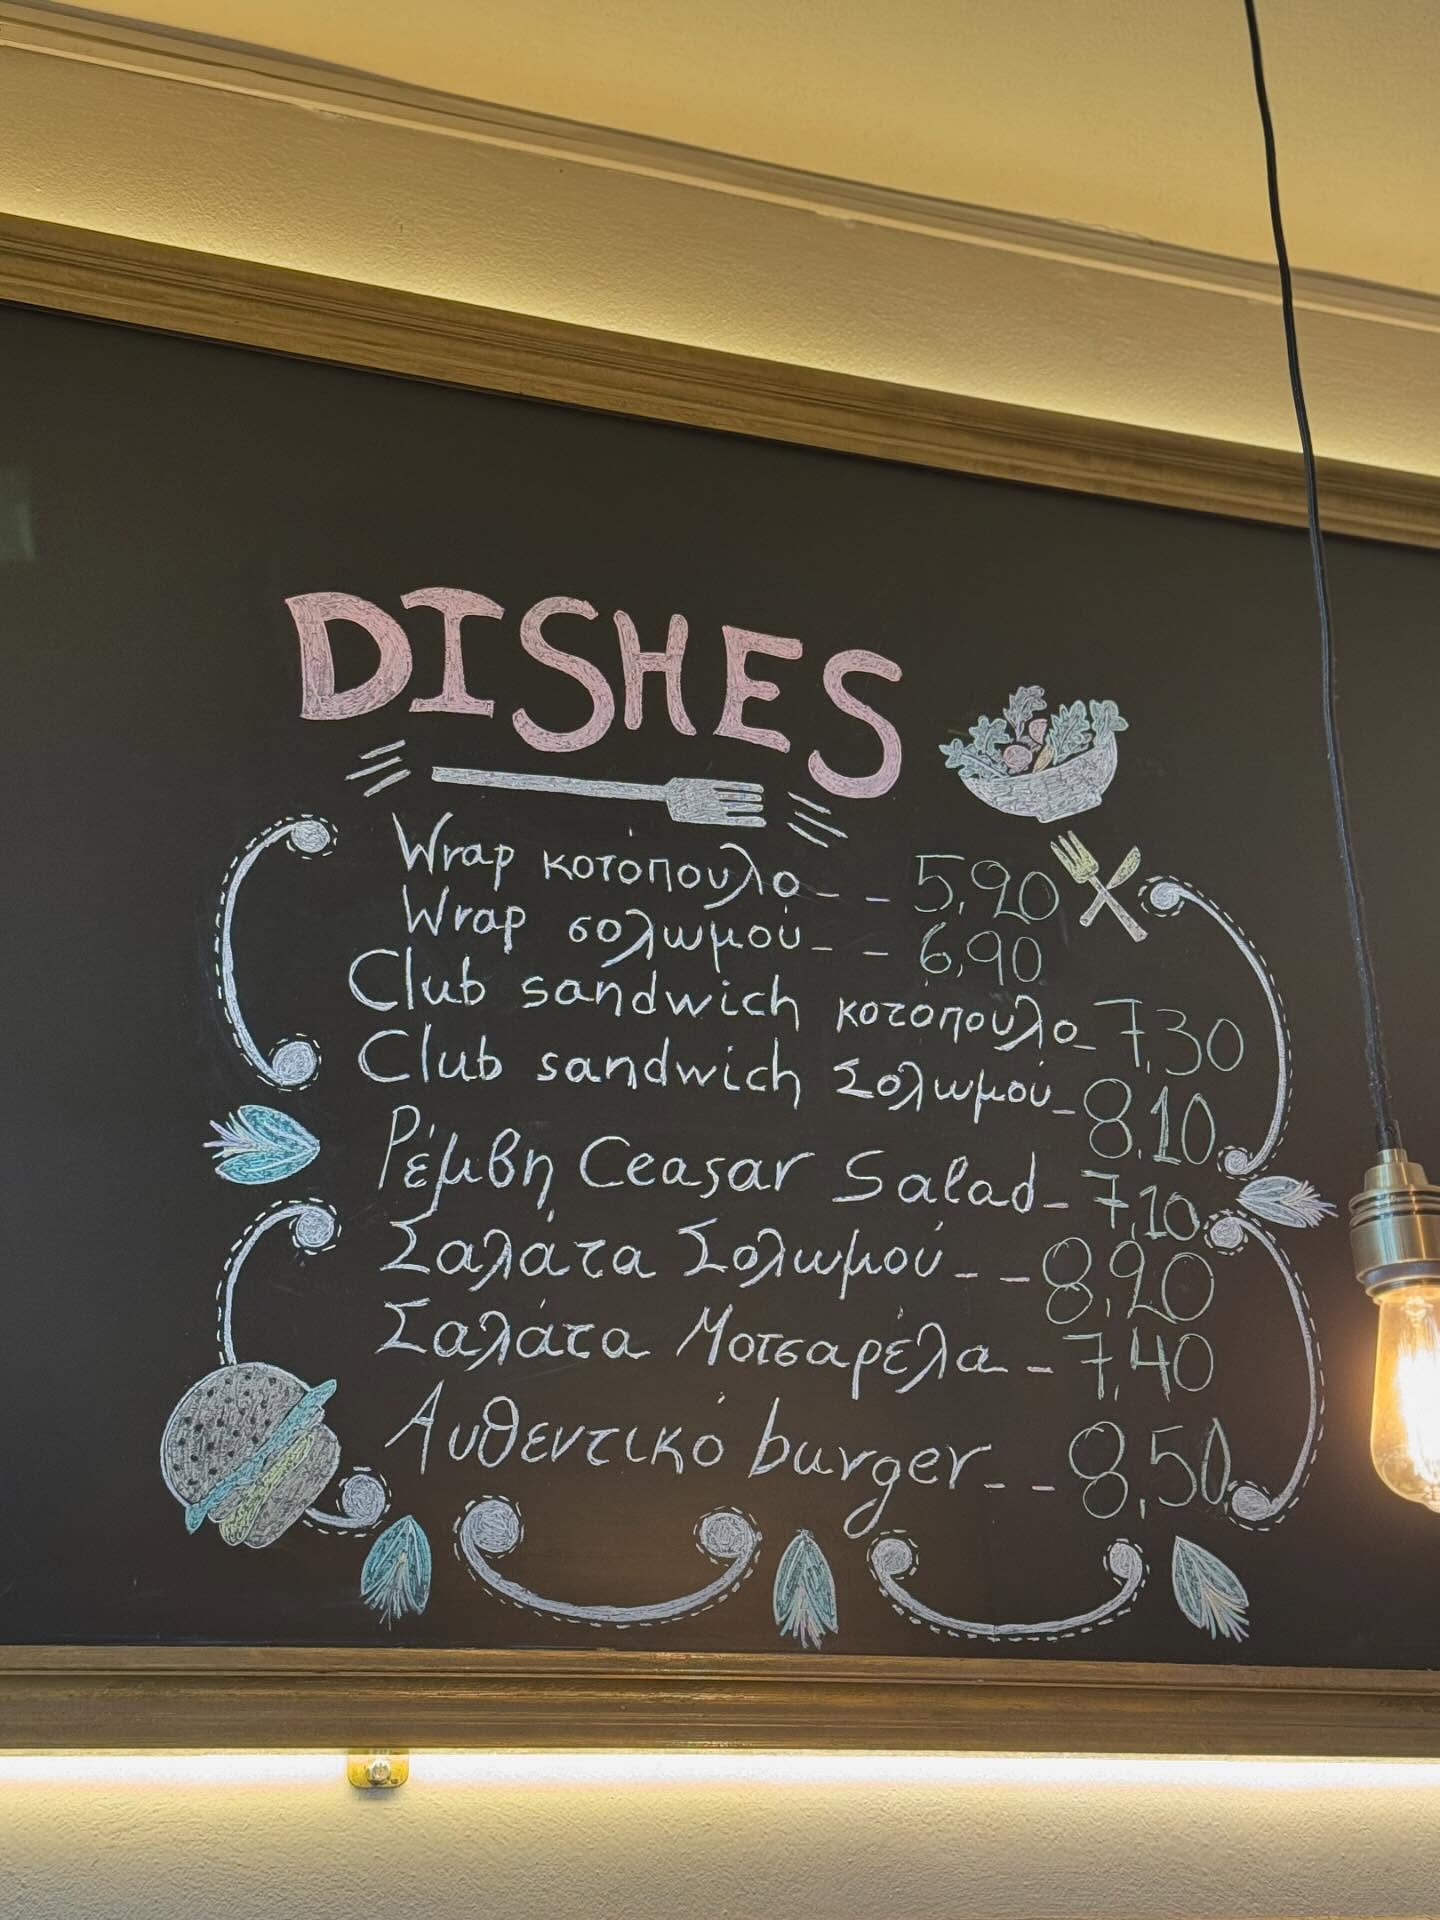 DISHES
Wrap κοτόπουλο_ _ 5,90
Wrap σολωμού_ _ 6,90
Club sandwich κοτόπουλο_ 7,30
Club sandwich Σολωμού_ 8,10
Ρέμβη Ceasar Salad_ 7,10
Σαλάτα Σολωμού_ _ 8,90
Σαλάτα Μοτσαρέλα_ 7,40
Αυθεντικό burger_ _ 8,50